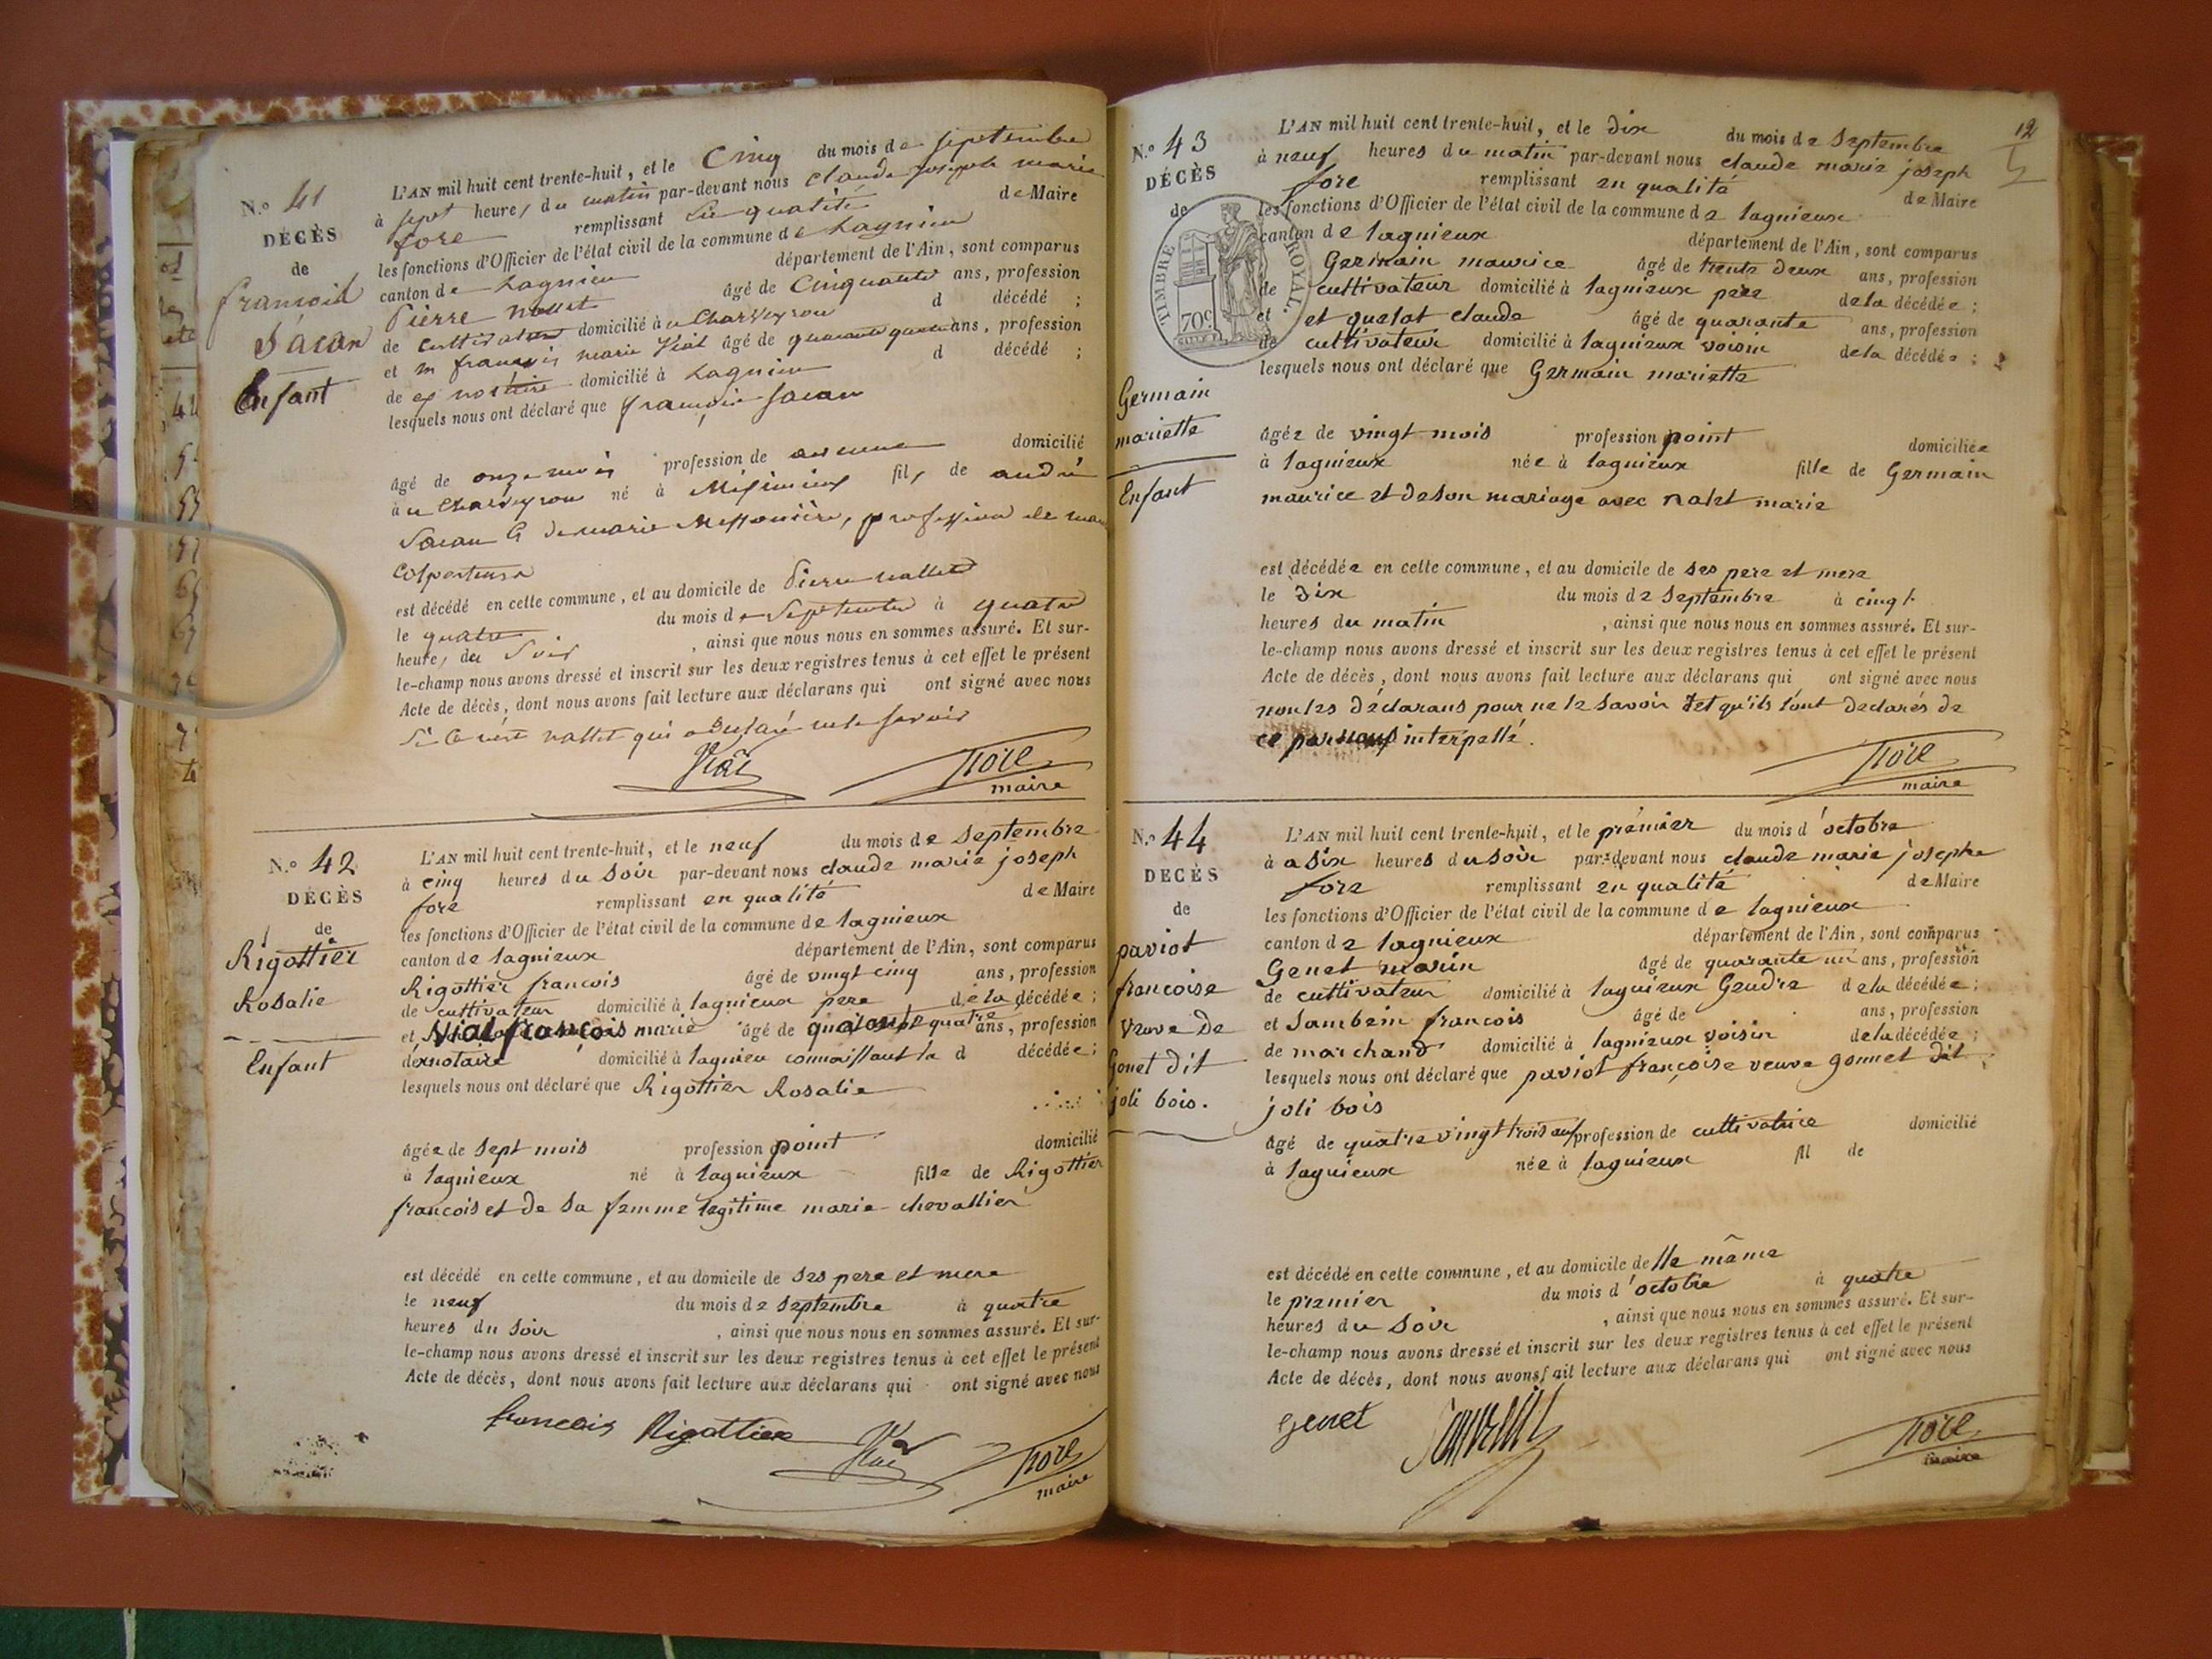 N.° 41
DÉCÈS
de
françois
Sacan
Enfant
L'AN mil huit cent trente-huit, et le Cinq du mois de septembre
à sept heures du matin par-devant nous Claude Joseph marie
fore remplissant En qualité de Maire
les fonctions d'Officier de l'état civil de la commune de Lagnieu
canton de Lagnieu département de l'Ain, sont comparus
Pierre Nallet âgé de Cinquante ans, profession
de cultivateur domicilié à Charveyron d décédé ;
et m françois marie Vial âgé de quarante quatre ans, profession
de ex notaire domicilié à Lagnieu d décédé ;
lesquels nous ont déclaré que françois Sacan
âgé de onze mois profession de aucune domicilié
à Charveyron né à Meximieux fils de andré
Sacan & de marie Messonière, profession de
Colporteurs
est décédé en cette commune, et au domicile de Pierre nallet
le quatre du mois de Septembre à quatre
heures du Soir , ainsi que nous nous en sommes assuré. Et sur-
le-champ nous avons dressé et inscrit sur les deux registres tenus à cet effet le présent
Acte de décès, dont nous avons fait lecture aux déclarans qui ont signé avec nous
Si Ce n'est nallet qui a déclaré ne le savoir
Vial fore
maire
N.° 42
DÉCÈS
de
Rigottier
Rosalie
Enfant
L'AN mil huit cent trente-huit, et le neuf du mois de Septembre
à cinq heures du Soir par-devant nous claude marie joseph
fore remplissant en qualité de Maire
les fonctions d'Officier de l'état civil de la commune de lagnieux
canton de lagnieux département de l'Ain, sont comparus
Rigottier francois âgé de vingt cinq ans, profession
de cultivateur domicilié à lagnieux pere de la décédée ;
et Vial françois marie âgé de quarante quatre ans, profession
dexnotaire domicilié à lagnieu connaissant la d décédée ;
lesquels nous ont déclaré que Rigottier Rosalie
âgée de sept mois profession point domicilié
à lagnieux né à lagnieux fille de Rigottier
francois et de sa femme legitime marie chevallier
est décédé en cette commune, et au domicile de ses pere et mere
le neuf du mois de septembre à quatre
heures du soir , ainsi que nous nous en sommes assuré. Et sur-
le-champ nous avons dressé et inscrit sur les deux registres tenus à cet effet le présent
Acte de décès, dont nous avons fait lecture aux déclarans qui ont signé avec nous
francois Rigottier Vial fore
maire
12
N.° 43
DÉCÈS
de
TIMBRE ROYAL.
70c
Germain
mariette
Enfant
L'AN mil huit cent trente-huit, et le dix du mois de Septembre
à neuf heures du matin par-devant nous claude marie joseph
fore remplissant en qualité de Maire
les fonctions d'Officier de l'état civil de la commune de lagnieux
canton de lagnieux département de l'Ain, sont comparus
Germain maurice âgé de trente deux ans, profession
de cultivateur domicilié à lagnieux pere de la décédée ;
et et quelat claude âgé de quarante ans, profession
de cultivateur domicilié à lagnieux voisin de la décédée ;
lesquels nous ont déclaré que Germain mariette
âgée de vingt mois profession point domiciliée
à lagnieux née à lagnieux fille de Germain
maurice et de son mariage avec nalet marie
est décédée en cette commune, et au domicile de ses pere et mere
le dix du mois de Septembre à cinq
heures du matin , ainsi que nous nous en sommes assuré. Et sur-
le-champ nous avons dressé et inscrit sur les deux registres tenus à cet effet le présent
Acte de décès, dont nous avons fait lecture aux déclarans qui ont signé avec nous
non les déclarans pour ne le savoir et qu'ils l'ont declarés de
ce par nous interpellé.
fore
maire
N.° 44
DÉCÈS
de
paviot
francoise
veuve de
Gonet dit
joli bois.
L'AN mil huit cent trente-huit, et le prémier du mois d'octobre
à a six heures du soir par-devant nous claude marie josephe
fore remplissant en qualité de Maire
les fonctions d'Officier de l'état civil de la commune de lagnieux
canton de lagnieux département de l'Ain, sont comparus
Genet marin âgé de quarante un ans, profession
de cultivateur domicilié à lagnieux Gendre de la décédée ;
et Sambein francois âgé de ans, profession
de marchand domicilié à lagnieux voisin de la décédée ;
lesquels nous ont déclaré que paviot françoise veuve gonnet dit
joli bois
âgé de quatre vingt trois ans profession de cultivatrice domicilié
à lagnieux née à lagnieux fil de
est décédé en cette commune, et au domicile de lle même
le premier du mois d'octobre à quatre
heures du Soir , ainsi que nous nous en sommes assuré. Et sur-
le-champ nous avons dressé et inscrit sur les deux registres tenus à cet effet le présent
Acte de décès, dont nous avons fait lecture aux déclarans qui ont signé avec nous
Genet fore
maire